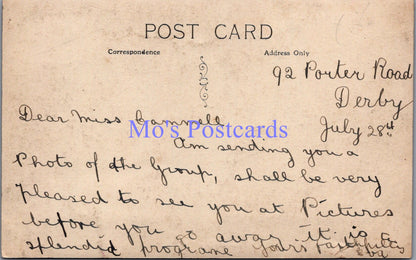 POST CARD
Correspondence
Address Only
92 Porter Road
Derby
July 28th
Dear Miss Gammell
Mo's Postcards
Am sending you a
Photo of the Group, shall be very
pleased to see you at Pictures
before you go away it is
splendid programe yours faithfully